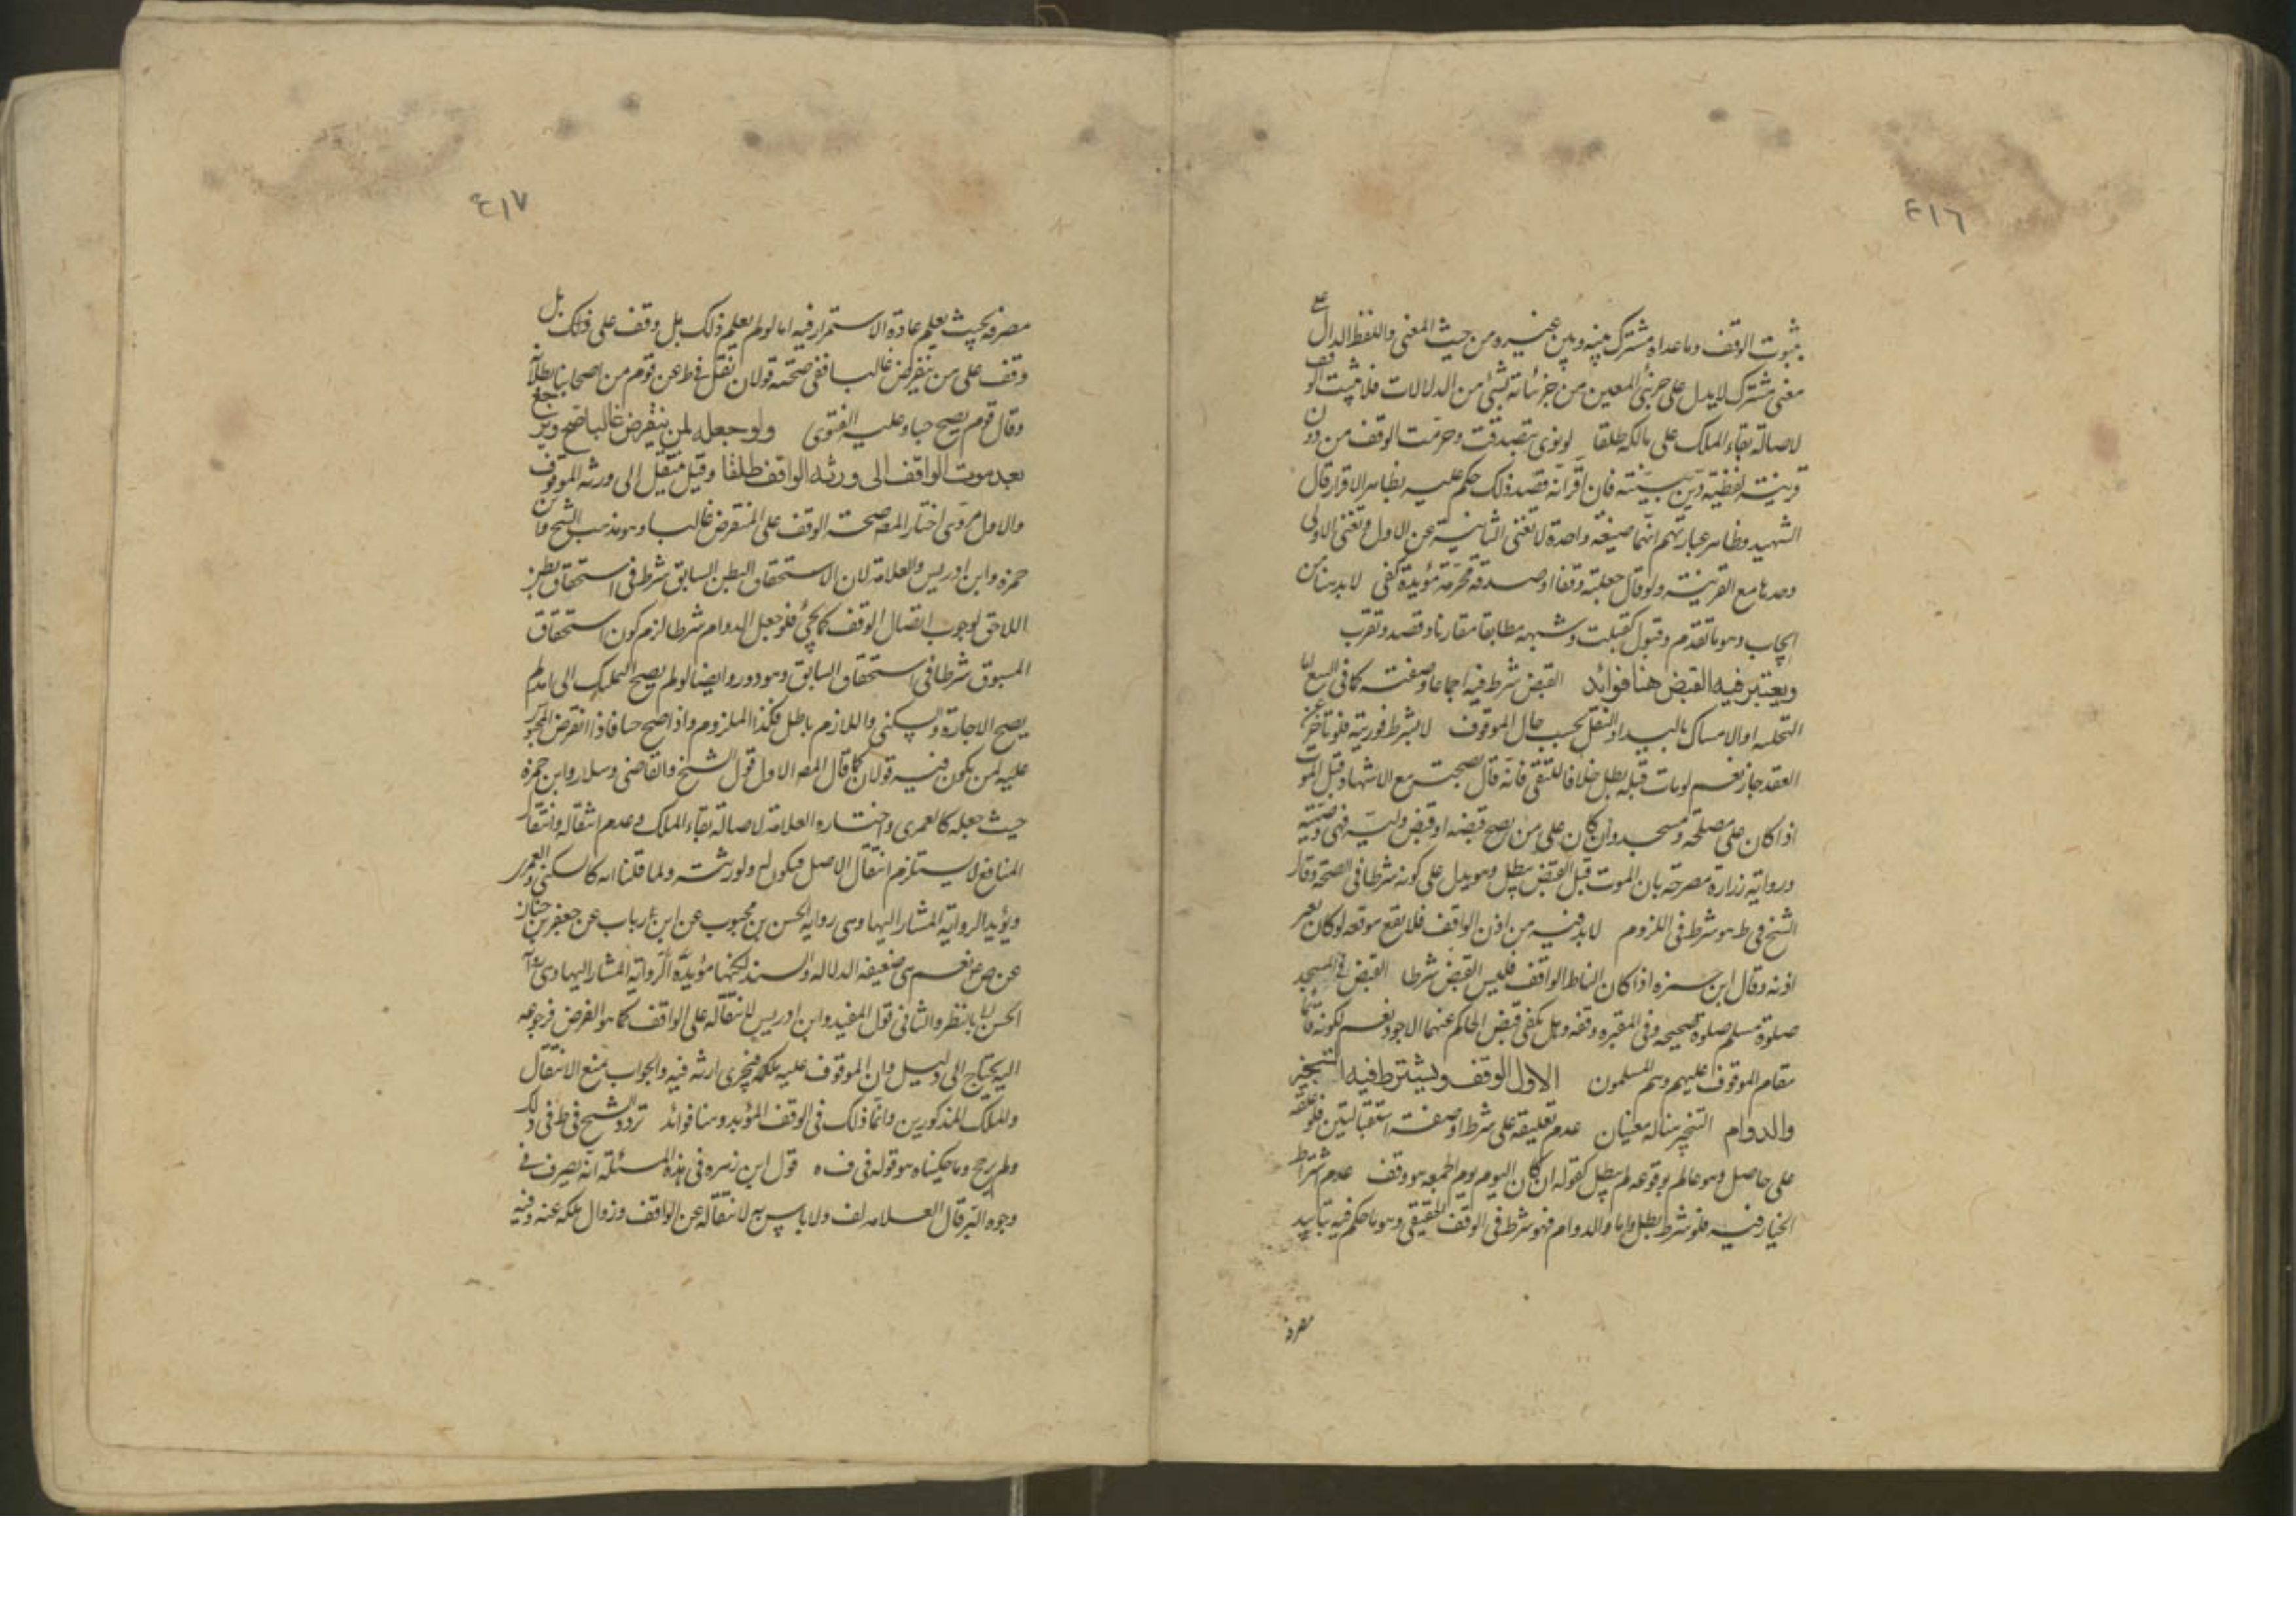 ٤١٦
بثبوت الوقف وما عداه مشترك بينه وبين غيره من حيث المعنى واللفظ الدال على
معنى مشترك لا يدل على جزئى المعين من جزئياته بشئ من الدلالات فلا يثبت الوقف
لاصالة بقاء الملك على مالكه مطلقا لو نوى بتصدقت وحرمت الوقف من دون
قرينة لفظية دين بنيته فان اقر انه قصد ذلك حكم عليه بظاهر الاقرار قال
الشهيد وظاهر عبارتهم انهما صيغة واحدة لا تغنى الثانية عن الاول وتغنى الاولى
وحدها مع القرينة ولو قال جعلته وقفا او صدقة محرمة مؤبدة كفى لا بد هنا من
ايجاب وهو ما تقدم وقبول كقبلت وشبهه مطابقا مقارنا وقصد وتقرب
ويعتبر فيه القبض هنا فوائد القبض شرط فيه اجماعا وصفته كما فى البيع اما
التخلية او الامساك باليد او النقل بحسب حال الموقوف لا يشترط فوريته فلو تاخر عن
العقد جاز نعم لو مات قبله بطل خلافا للتقى فانه قال بصحته مع الاشهاد قبل الموت
اذا كان على مصلحة ومسجد وان كان على من يصح قبضه او قبض وليه فهى وصية
ورواية زرارة مصرحة بان الموت قبل القبض يبطل وهو يدل على كونه شرطا فى الصحة وقال
الشيخ فى ط هو شرط فى اللزوم لا بد فيه من اذن الواقف فلا يقع موقعه لو كان بغير
اذنه وقال ابن حمزه اذا كان الناظر الواقف فليس القبض شرطا القبض فى المسجد
صلوة مسلم صلوة صحيحه وفى المقبره دفنه وهل يكفى قبض الحاكم عنهما الاجود نعم لكونه قائما
مقام الموقوف عليهم وهم المسلمون الاول الوقف ويشترط فيه التنجيز
والدوام التنجيز هنا له معنيان عدم تعليقه على شرط او صفة استقباليتين فلو علقه
على حاصل وهو عالم بوقوعه لم يبطل كقوله ان كان اليوم يوم الجمعه هو وقف عدم اشتراط
الخيار فيه فلو شرط بطل واما والدوام فهو شرط فى الوقف الحقيقى وهو ما حكم فيه بتابيد
مصرفه
٤١٧
مصرفه بحيث يعلم عادة الاستمرار فيه اما لو لم يعلم ذلك بل وقف على ذلك بل
وقف على من ينقرض غالبا ففى صحته قولان نقل فى ط عن قوم من اصحابنا بطلانه
وقال قوم يصح حبا وعليه الفتوى ولو جعله لمن ينقرض غالبا صح ويرجع
بعد موت الواقف الى ورثه الواقف طلقا وقيل ينتقل الى ورثه الموقوف
والاول مروى اختار المص صحة الوقف على المنقرض غالبا وهو مذهب الشيخ وابن
حمزه وابن ادريس والعلامة لان الاستحقاق البطن السابق شرط فى استحقاق بطن
اللاحق لوجوب اتصال الوقف كما يجئ فلو جعل الدوام شرطا لزم كون استحقاق
المسبوق شرطا فى استحقاق السابق وهو دور وايضا لو لم يصح التمليك الى امد لم
يصح الاجارة والسكنى واللازم باطل فكذا الملزوم واذا صح حبسا فاذا انقرض المحبوس
عليه لمن يكون فيه قولان كما قال المص الاول قول الشيخ والقاضى وسلار وابن حمزه
حيث جعله كالعمرى واختاره العلامة لاصالة بقاء الملك وعدم انتقاله وانتقال
المنافع لا يستلزم انتقال الاصل فيكون له ولورثته ولما قلنا انه كالسكنى والعمرى
ويؤيد الرواية المشار اليها وهى رواية الحسن بن محبوب عن ابن رباب عن جعفر بن حنان
عن ص ع نعم هى ضعيفة الدلاله والسند لكنها مؤيدة الرواية المشار اليها وهى
الحسن بالنظر والثانى قول المفيد وابن ادريس لانتقاله على الواقف كما هو الفرض فرجوعه
اليه يحتاج الى دليل وان الموقوف عليه ملكه فيجرى ارثه فيه والجواب منع الانتقال
والملك المذكورين وانما ذلك فى الوقف المؤبد وهنا فوائد تردد الشيخ فى ط فى ذلك
ولم يرجح وما حكيناه هو قوله فى ف ه قول ابن زهره فى هذه المسئلة انه يصرف فى
وجوه البر قال العلامه لف ولا باس به لانتقاله عن الواقف وزوال ملكه عنه وفيه